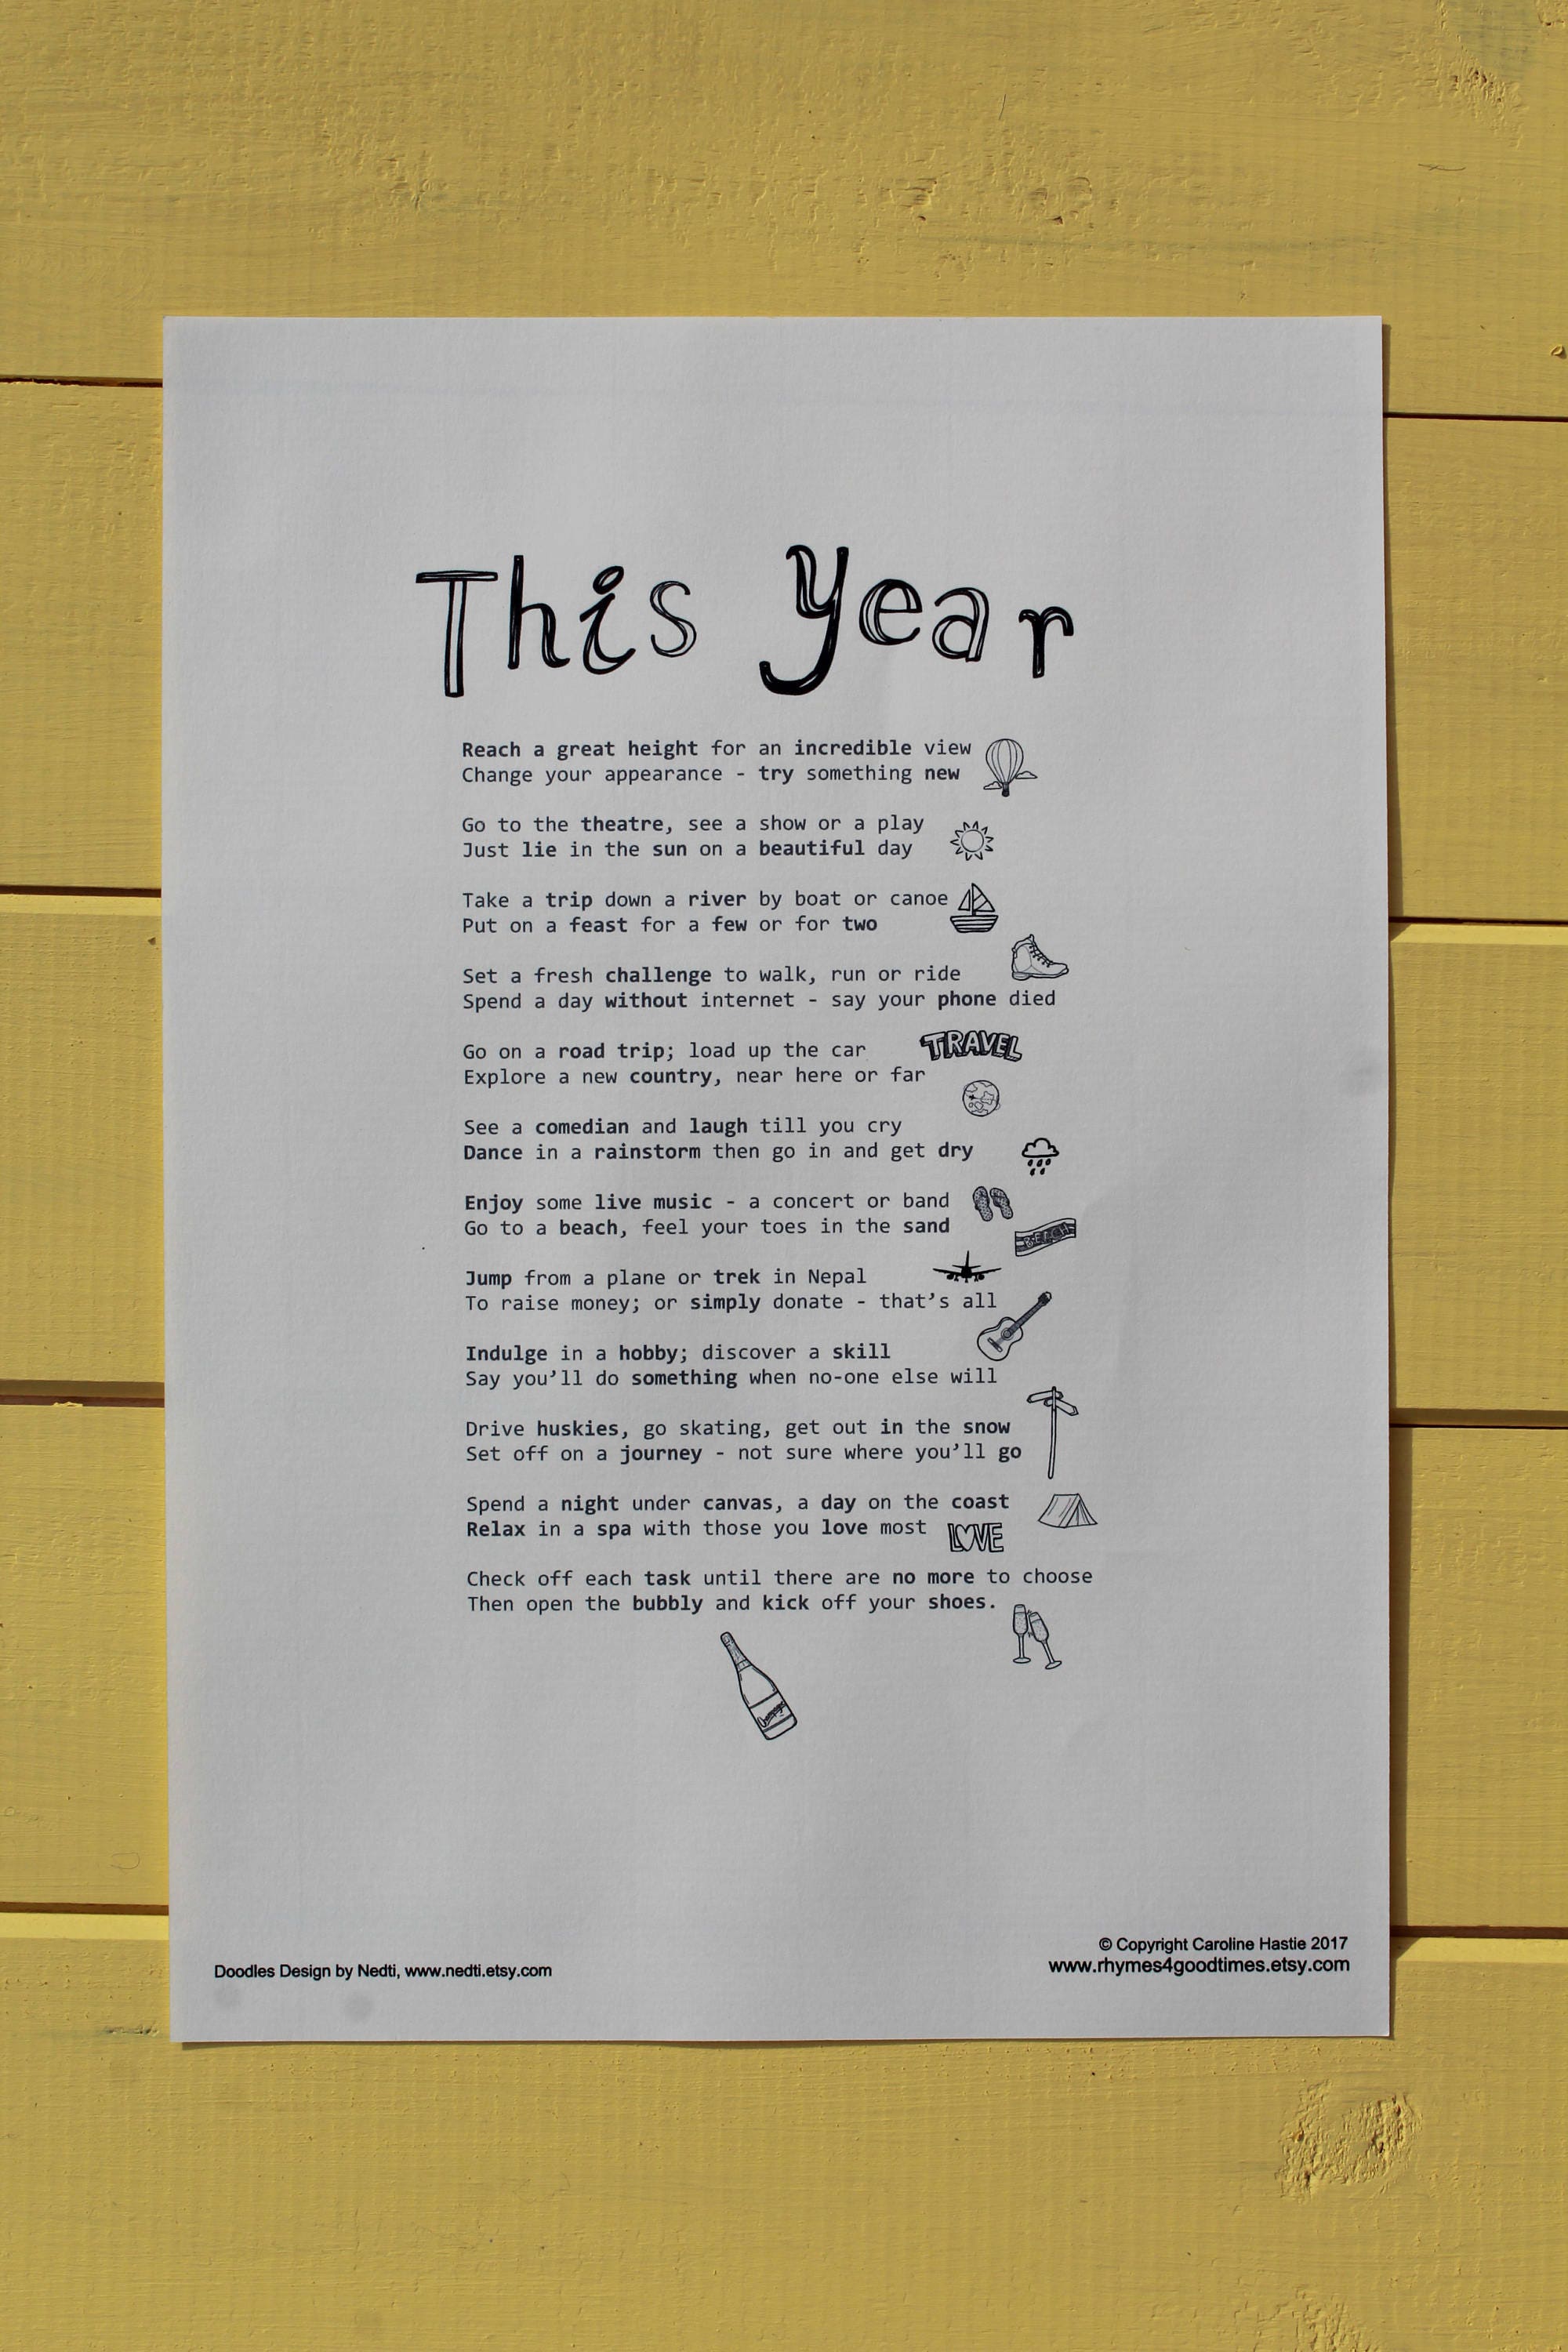 This Year
Reach a great height for an incredible view
Change your appearance - try something new
Go to the theatre, see a show or a play
Just lie in the sun on a beautiful day
Take a trip down a river by boat or canoe
Put on a feast for a few or for two
Set a fresh challenge to walk, run or ride
Spend a day without internet - say your phone died
Go on a road trip; load up the car
TRAVEL
Explore a new country, near here or far
See a comedian and laugh till you cry
Dance in a rainstorm then go in and get dry
Enjoy some live music - a concert or band
Go to a beach, feel your toes in the sand
BEACH
Jump from a plane or trek in Nepal
To raise money; or simply donate - that's all
Indulge in a hobby; discover a skill
Say you'll do something when no-one else will
Drive huskies, go skating, get out in the snow
Set off on a journey - not sure where you'll go
Spend a night under canvas, a day on the coast
Relax in a spa with those you love most
LOVE
Check off each task until there are no more to choose
Then open the bubbly and kick off your shoes.
Champagne
Doodles Design by Nedti, www.nedti.etsy.com
© Copyright Caroline Hastie 2017
www.rhymes4goodtimes.etsy.com